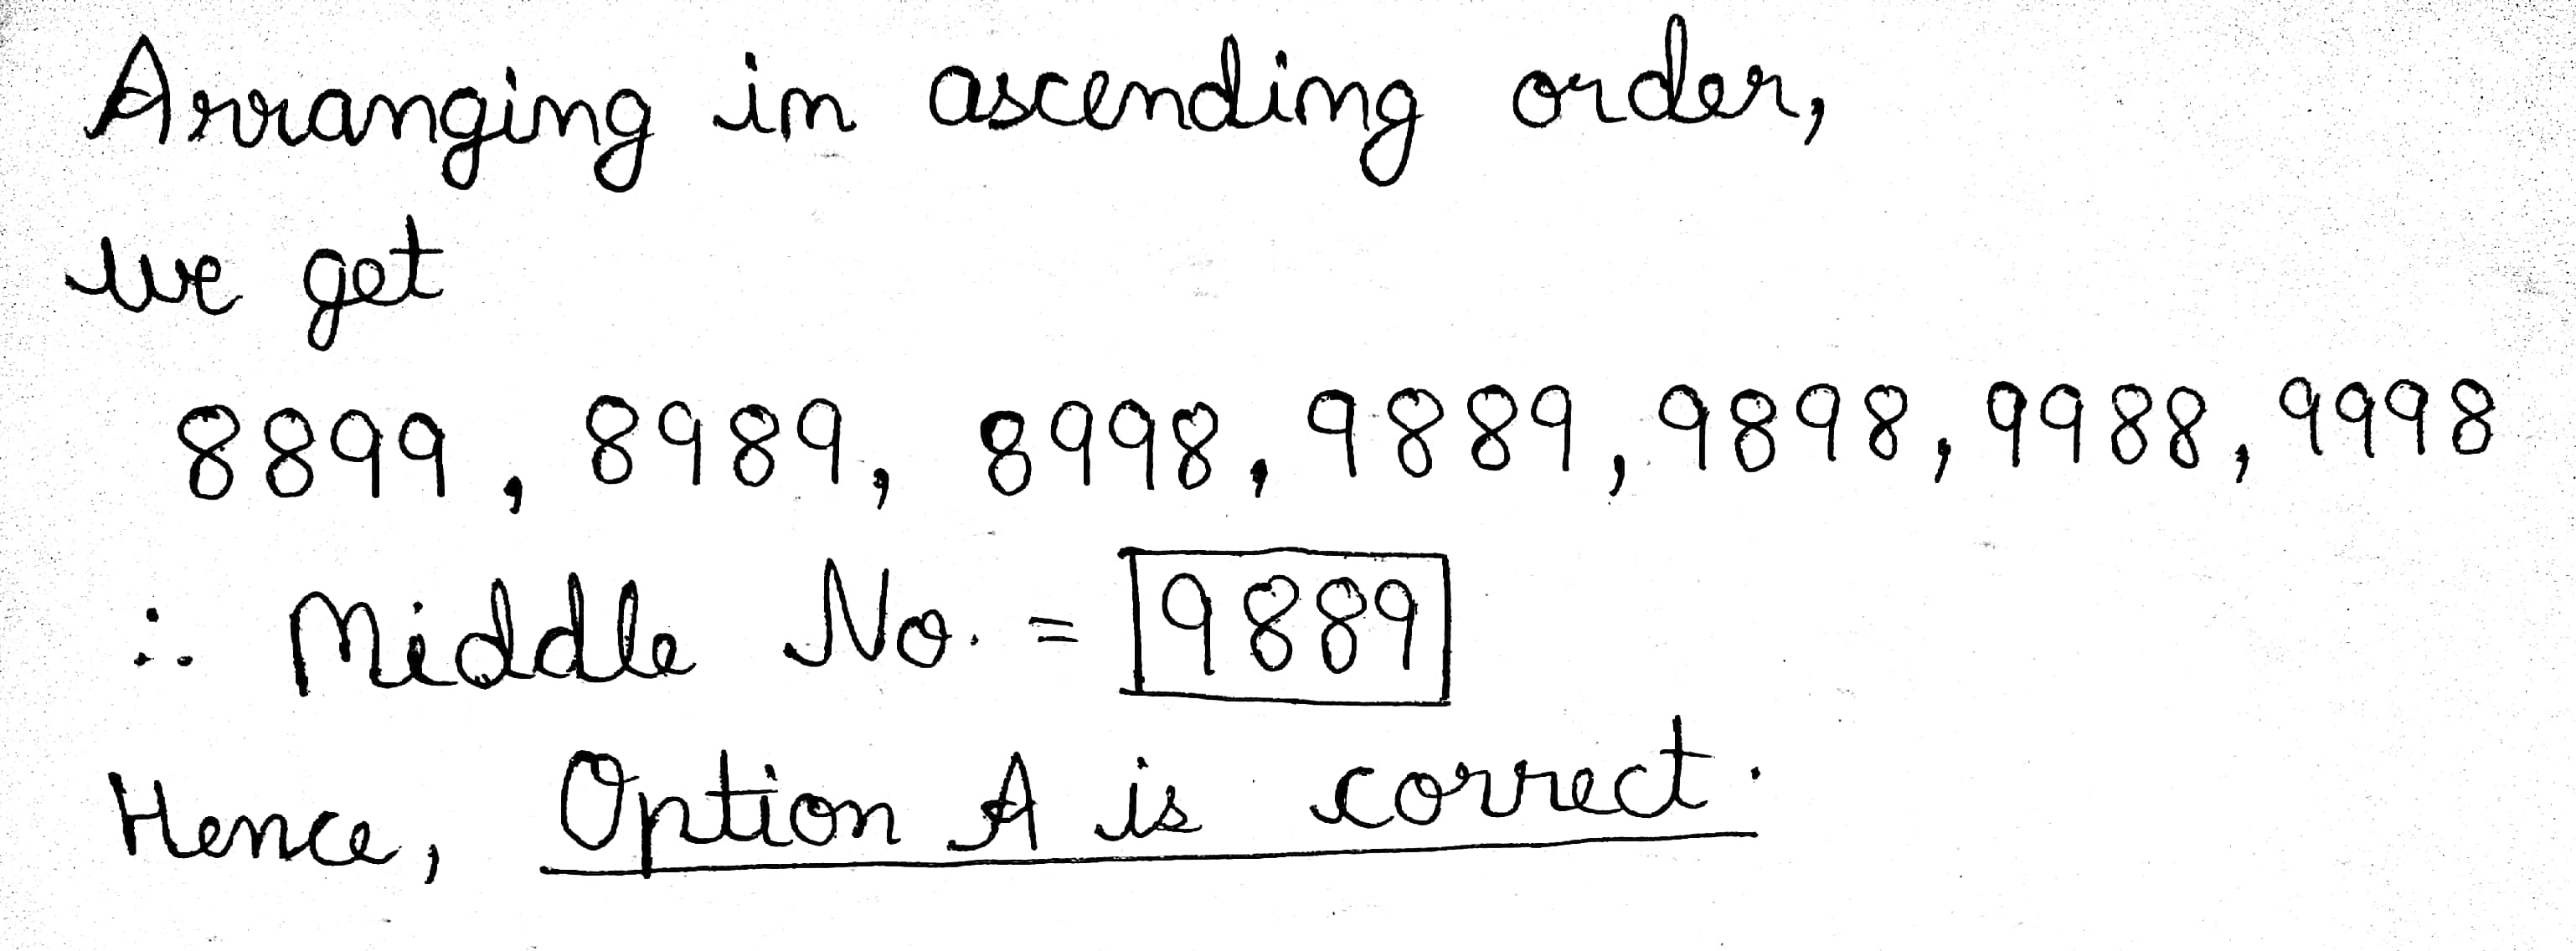 Arranging in ascending order,
we get
8899, 8989, 8998, 9889, 9898, 9988, 9998
∴ Middle No. = 9889
Hence, Option A is correct.